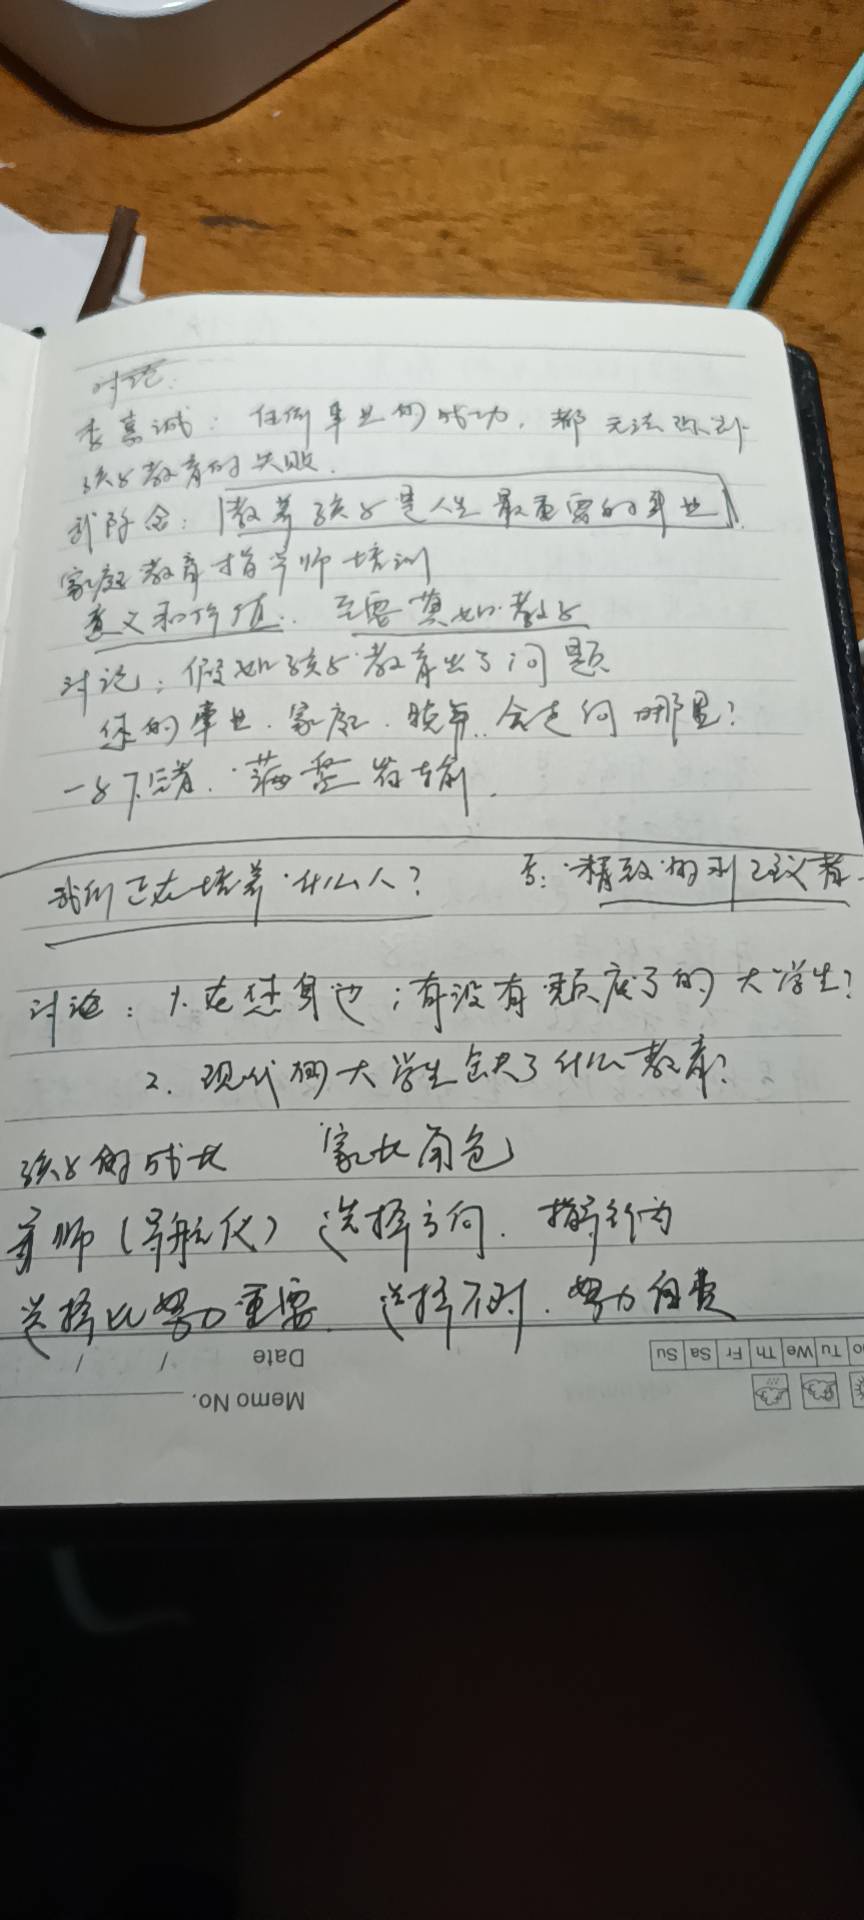 讨论:
李嘉诚: 任何事业的成功, 都无法弥补
孩子教育的失败.
: 教养孩子是人生最重要的事业
家庭教育指导师培训
意义和价值: 至要莫如教子
讨论: 假如孩子教育出了问题
您的事业. 家庭. 晚年.. 会走向哪里?
一子下错. 满盘皆输.
我们正在培养什么人? “精致”的利己主义者.
讨论: 1. 在您身边; 有没有颓废了的大学生?
2. 现代的大学生缺失了什么教育?
孩子的成长 家长角色
导师(导航仪) 选择方向. 指导行为
选择比努力重要. 选择不对. 努力白费
Mo Tu We Th Fr Sa Su
Date / /
Memo No.